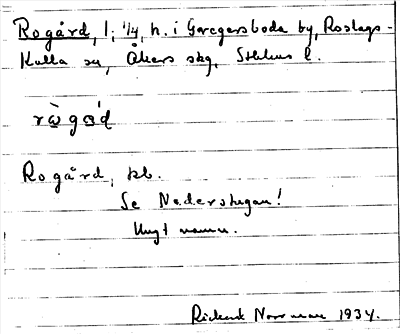 Rogård, l, 1/4, h. i Gregersboda by, Roslags-
Kulla sn, Åkers skg, Sthlms l.
rògá̀d
Rogård, bb.
Se Nederstugan!
Ungt namn.
Rickard Norrman 1934.